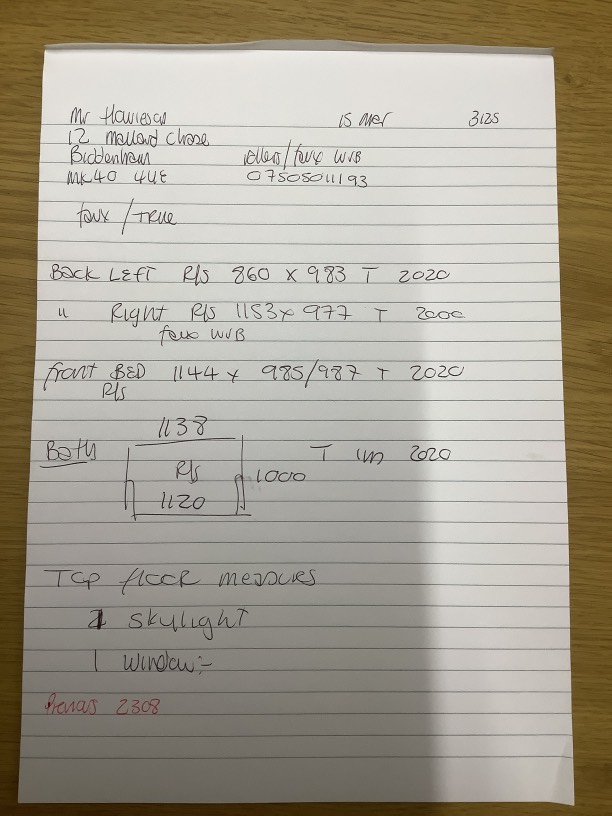 Mr Howieson 15 Mar 3125
12 Mallard Chase
Biddenham rollers/faux WVB
MK40 4UE 07505011193
faux/TRUE
Back Left R/s 860 x 983 T 2020
" Right R/s 1153 x 977 T 2000
faux WVB
front BED 1144 x 985/987 T 2020
R/s
1138
Bath R/s 1000 T 2020
1120
Top floor measures
skylight
1 window:-
Previous 2308